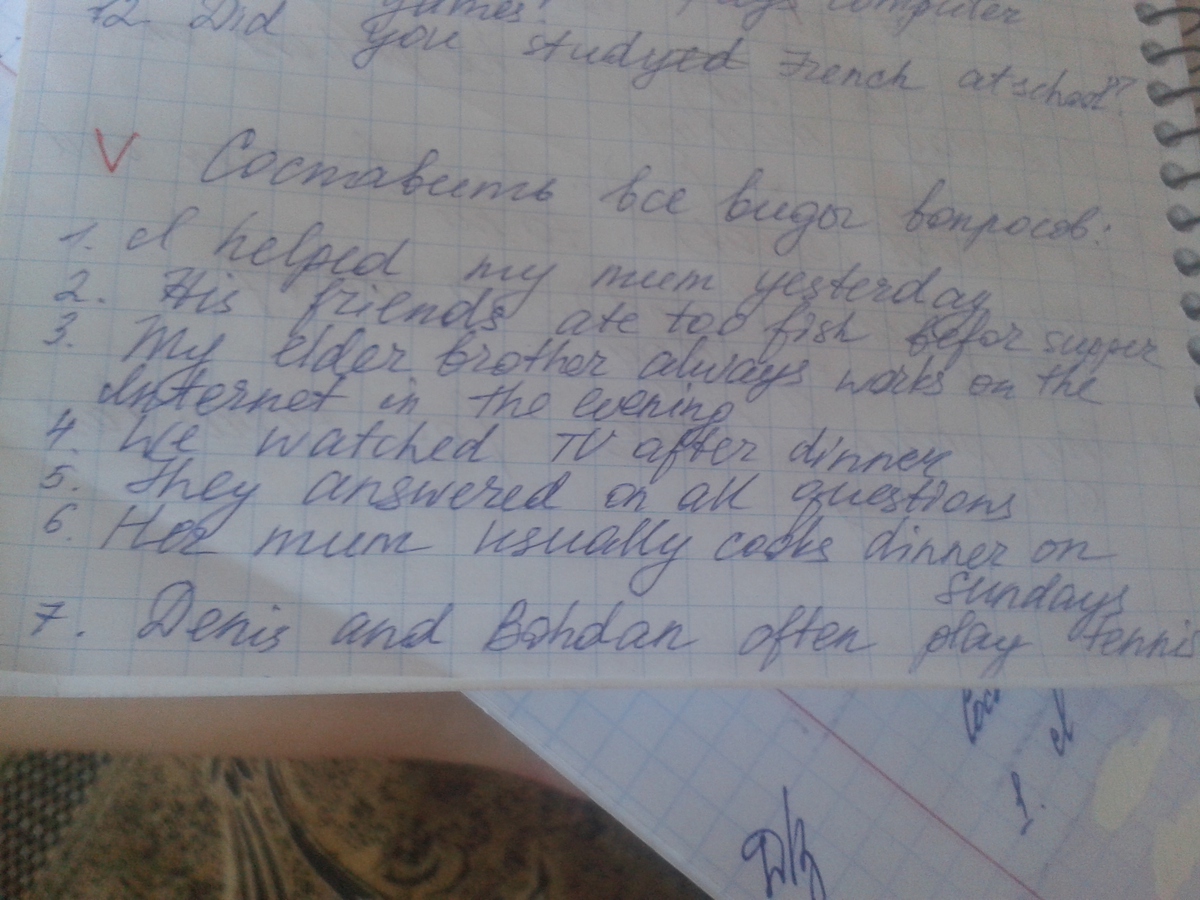 games? plays computer
12. Did you studyed French at school?
V Составить все виды вопросов:
1. I helped my mum yesterday
2. His friends ate too fish befor supper
3. My elder brother always works on the
Internet in the evening
4. We watched TV after dinner
5. They answered on all questions
6. Her mum usually cooks dinner on
Sundays
7. Denis and Bohdan often play tennis
1. I